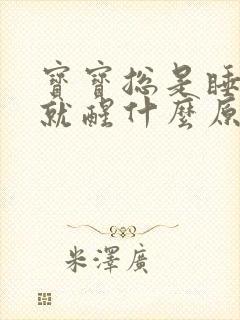 寶寶總是睡
就醒什麼原
米澤廣